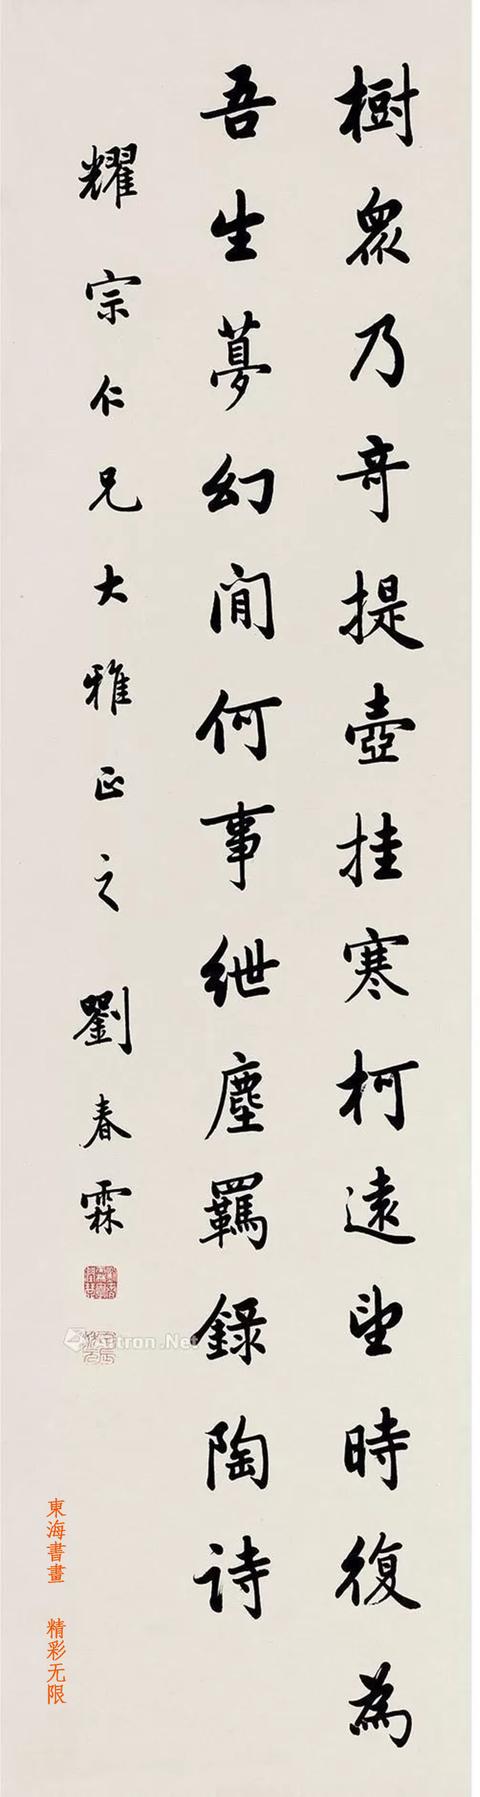 樹眾乃奇提壺挂寒柯遠望時復為
吾生夢幻間何事紲塵羈錄陶詩
耀宗仁兄大雅正之 劉春霖
Artron.Net
東海書畫 精彩无限